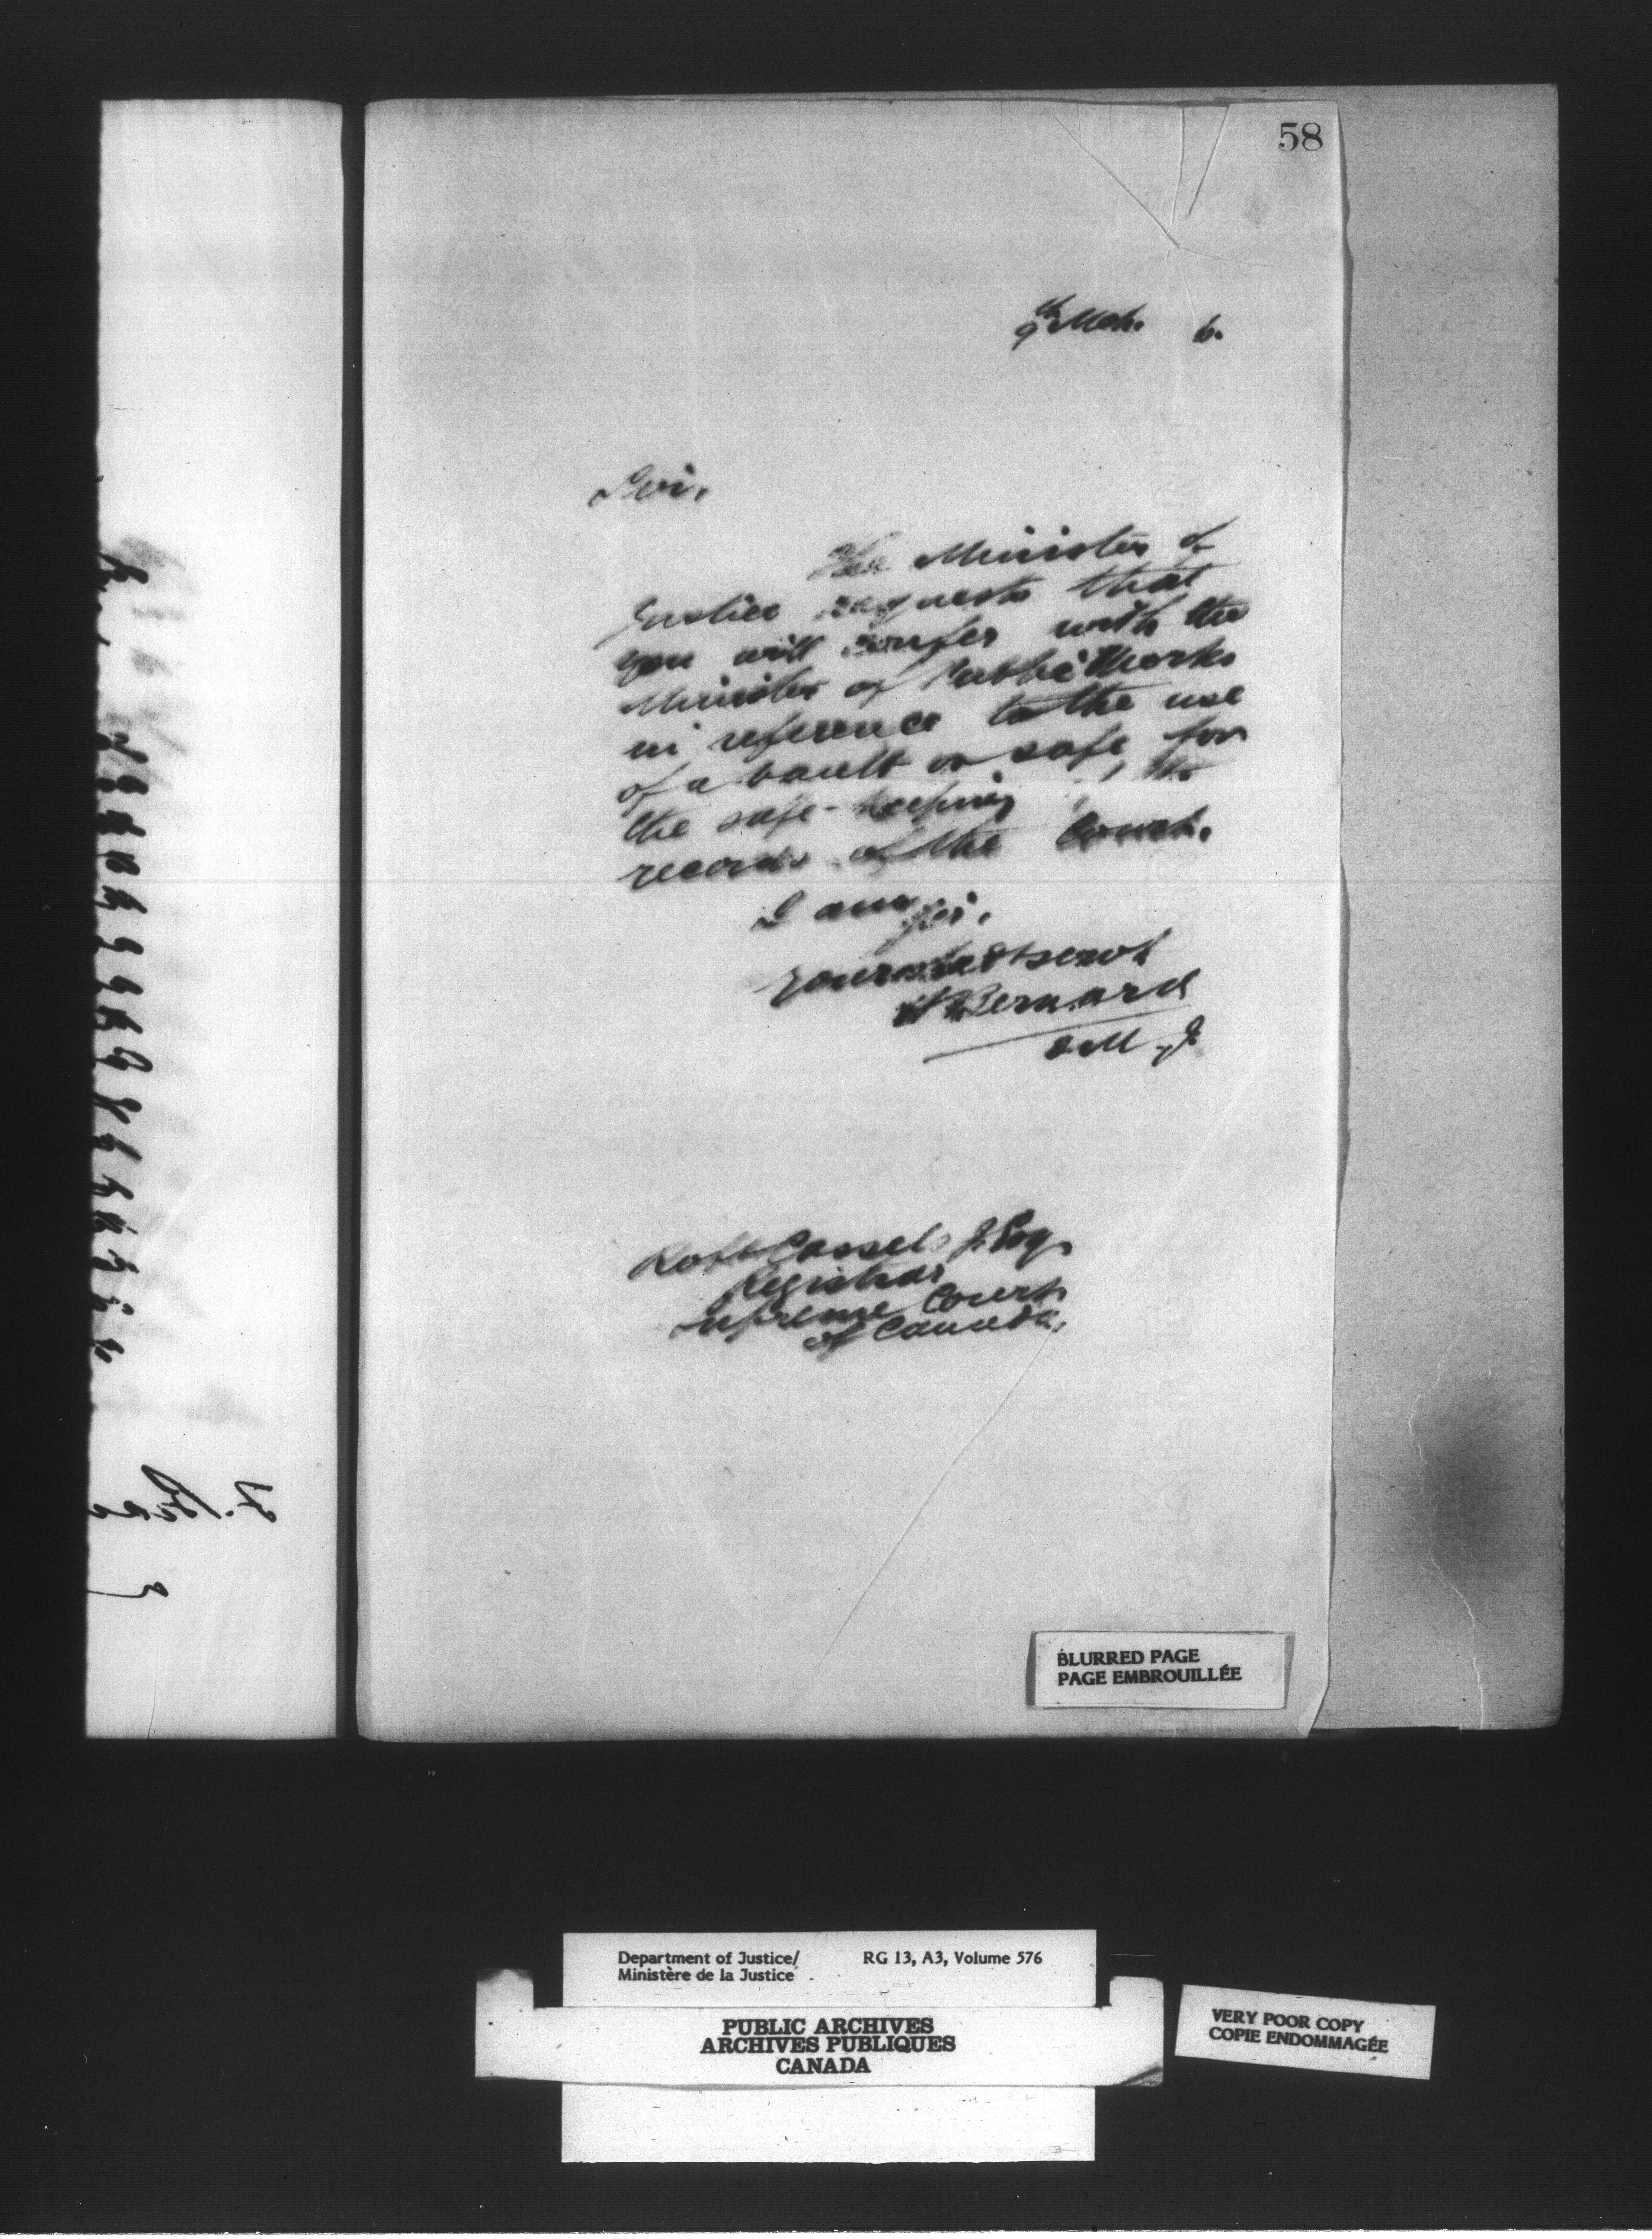 58
9th Mch. 6.
Sir,
The Minister of
Justice requests that
you will confer with the
Minister of Public Works
in reference to the use
of a vault or safe for
the safe-keeping of the
records of the Court.
I am Sir,
Your obedt servt
H Bernard
D M J
Robt Cassels Jr Esq.
Registrar
Supreme Court
of Canada.
BLURRED PAGE
PAGE EMBROUILLÉE
Department of Justice/ RG 13, A3, Volume 576
Ministère de la Justice
PUBLIC ARCHIVES
ARCHIVES PUBLIQUES
CANADA
VERY POOR COPY
COPIE ENDOMMAGÉE